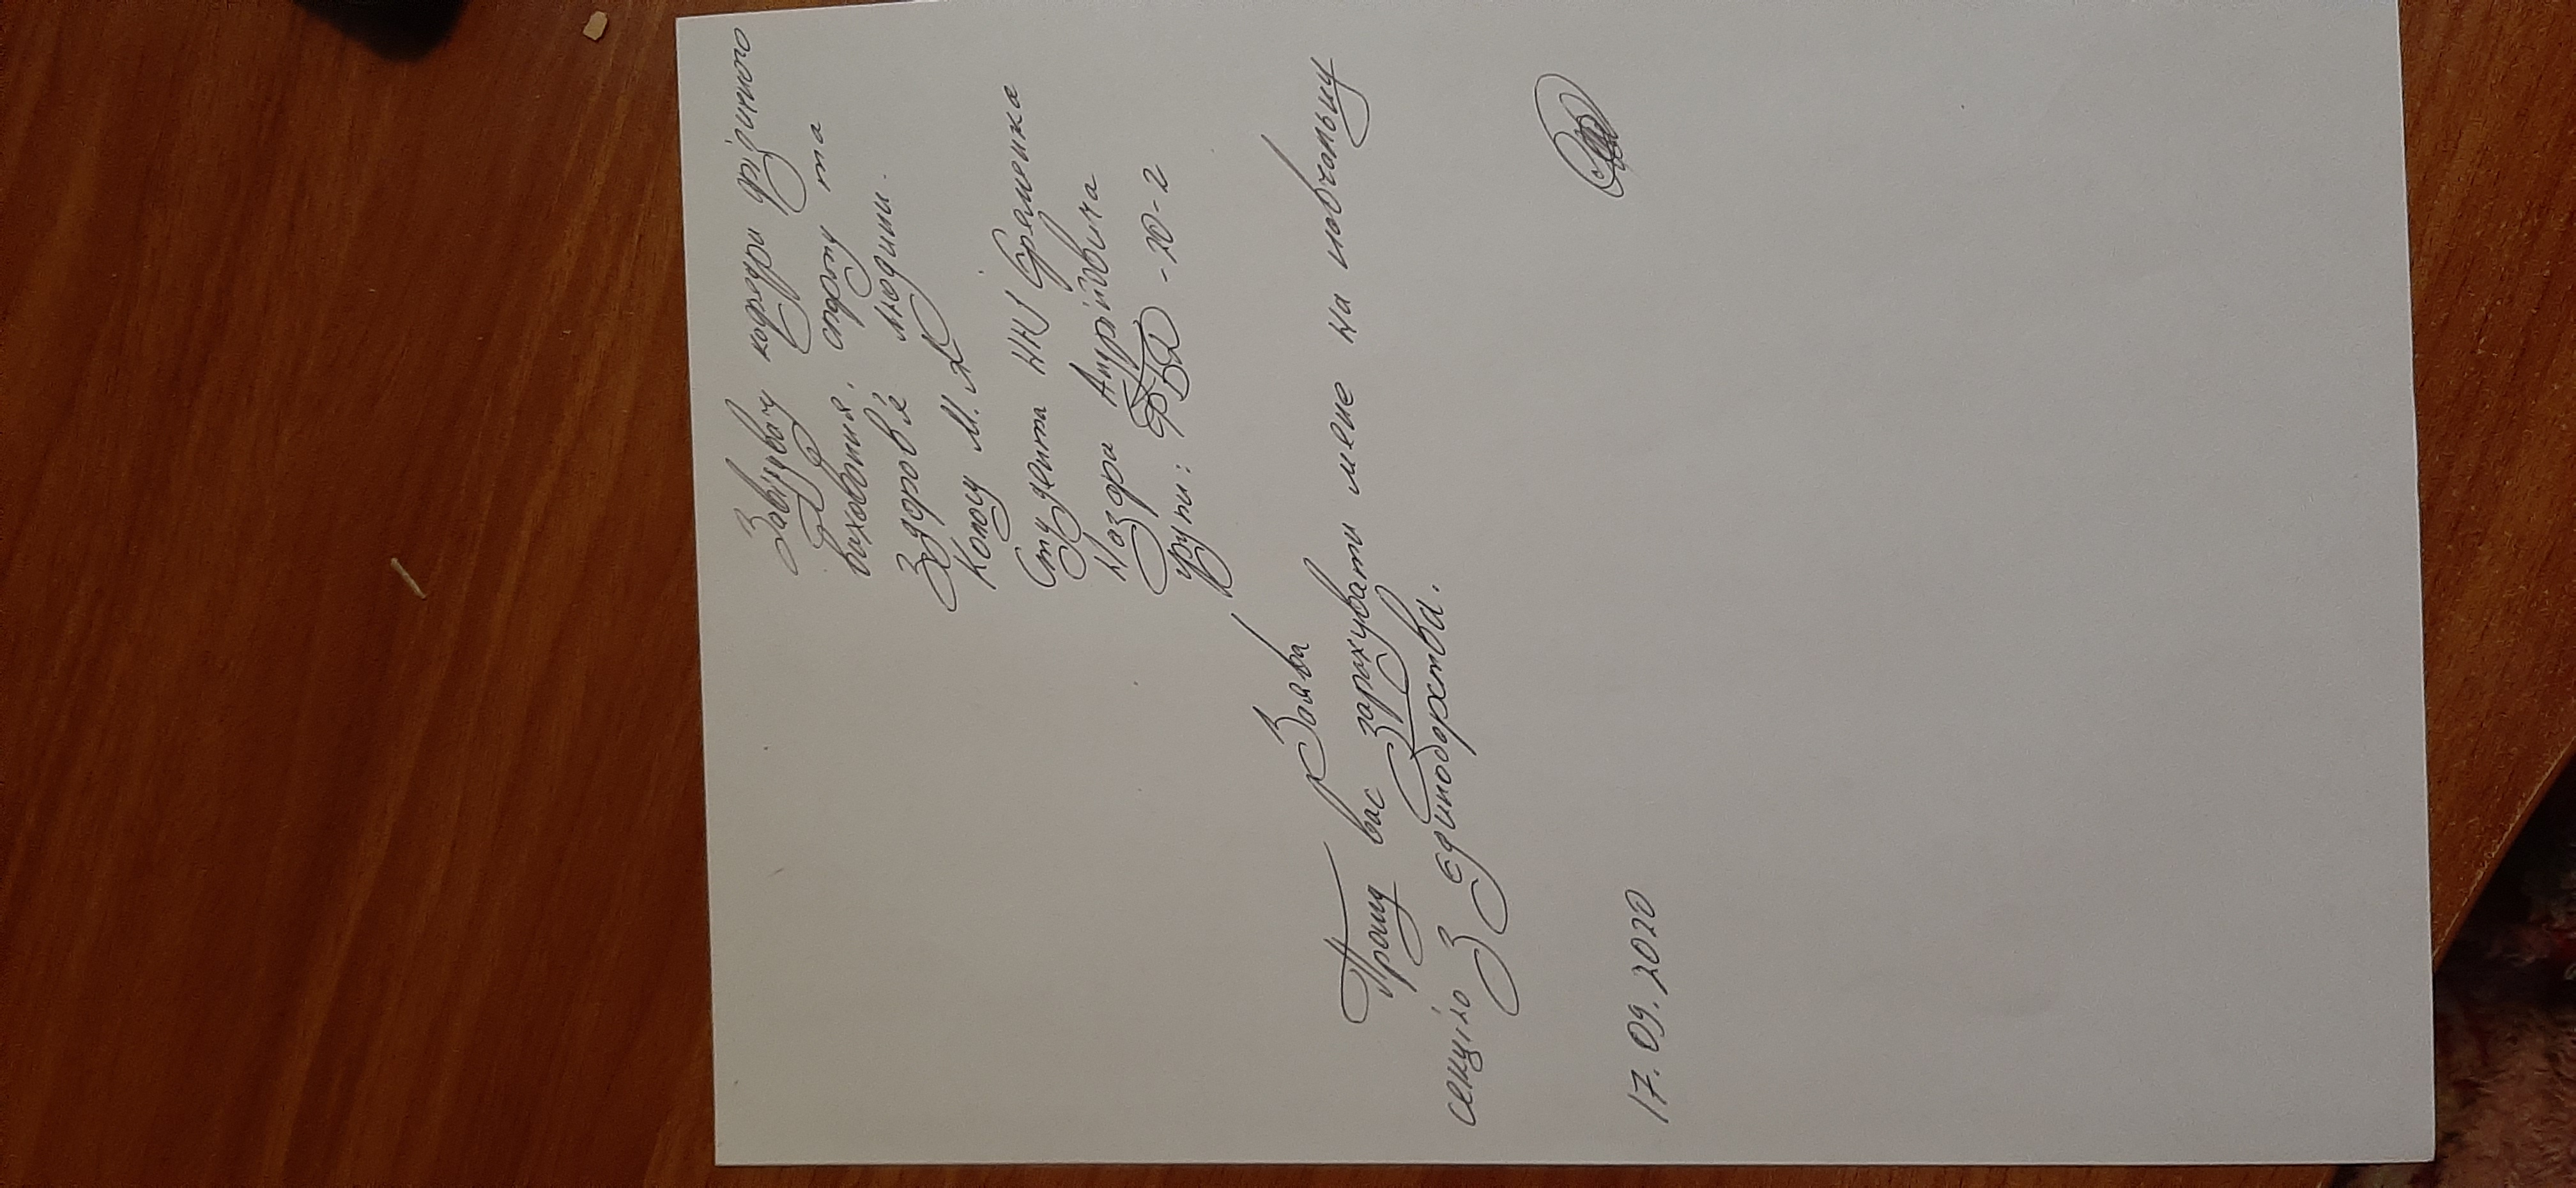 Завідувачу кафедри фізичного
виховання, спорту та
Здоров'я людини.
Колосу М. А
Студента ННІ
Назара Андрійовича
групи: ФБД-20-2
Заява
Прошу вас зарахувати мене на навчальну
секцію з єдиноборства.
17.09.2020